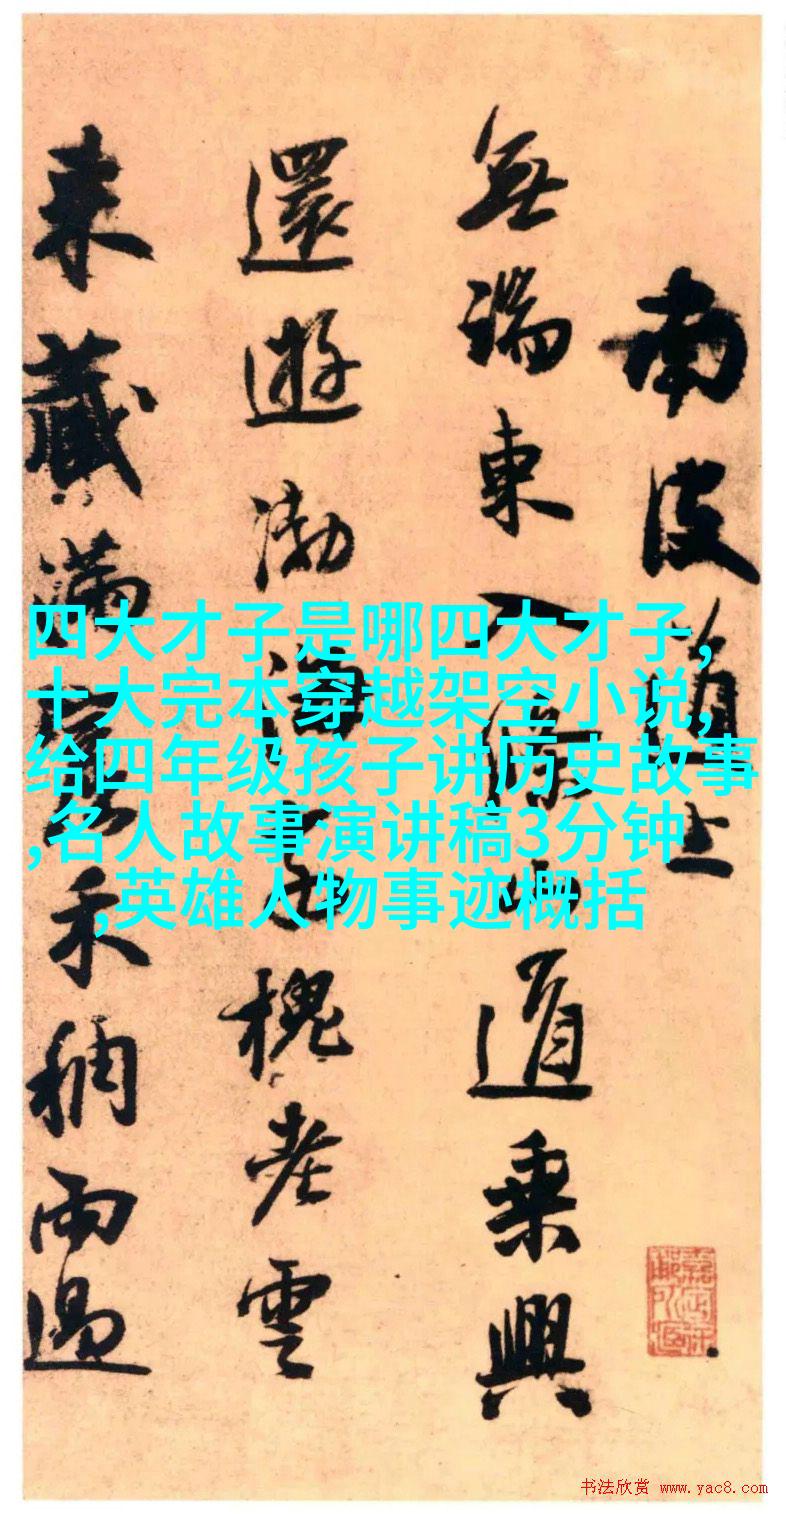 南皮道上
無端東入道乘興
還遊渤海槐老雲
来藏滿禾稠雨過
四大才子是哪四大才子,
十大完本穿越架空小说,
给四年级孩子讲历史故事
,名人故事演讲稿3分钟
,英雄人物事迹概括
书法欣赏 www.yac8.com